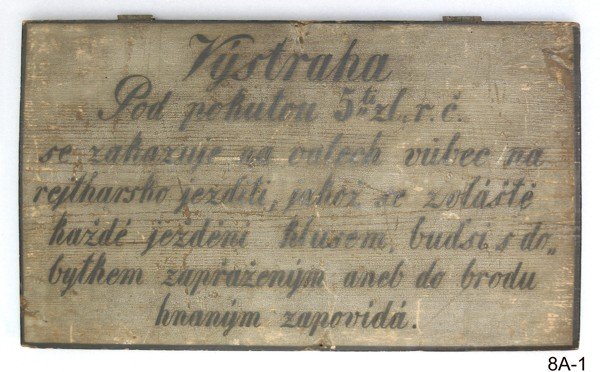 Výstraha
Pod pokutou 5ti zl. r. č.
se zakazuje na valech vůbec na
rejtharsko jezditi, jakož se zvláště
každé ježdění klusem, budsi s do„
bytkem zapřaženým aneb do brodu
hnaným zapovídá.
8A-1